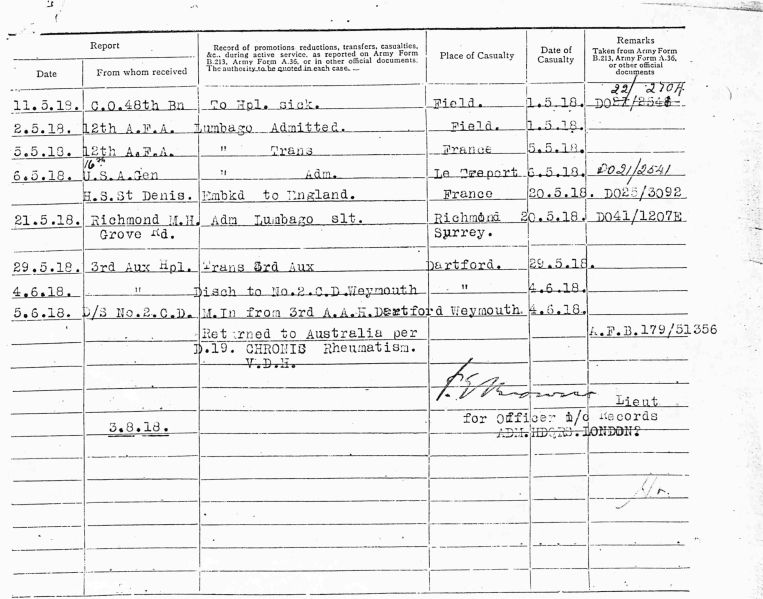 Report
Record of promotions reductions, transfers, casualties,
&c., during active service, as reported on Army Form
B.213, Army Form A.36, or in other official documents.
The authority to be quoted in each case. —
Place of Casualty
Date of
Casualty
Remarks
Taken from Army Form
B.213, Army Form A.36,
or other official
documents
Date
From whom received
22/ 270A
11.5.18. C.O.48th Bn To Hpl. sick. Field. 1.5.18.
2.5.18. 12th A.F.A. Lumbago Admitted. Field. 1.5.18.
5.5.18. 12th A.F.A. " Trans France 5.5.18.
16th
6.5.18. U.S.A.Gen " Adm. Le Treport 6.5.18. DO21/2541
H.S.St Denis. Embkd to England. France 20.5.18. DO25/3092
21.5.18. Richmond M.H. Adm Lumbago slt. Richmond 20.5.18. DO41/1207E
Grove Rd. Surrey.
29.5.18. 3rd Aux Hpl. Trans 3rd Aux Dartford. 29.5.18.
4.6.18. " Disch to No.2.C.D.Weymouth " 4.6.18.
5.6.18. D/S No.2.C.D. M.In from 3rd A.A.H.Dartford Weymouth. 4.6.18.
Returned to Australia per A.F.B.179/51356
D.19. CHRONIS Rheumatism.
V.D.H.
Lieut
for Officer i/c Records
3.8.18.
ADM.HDQRS.LONDON?